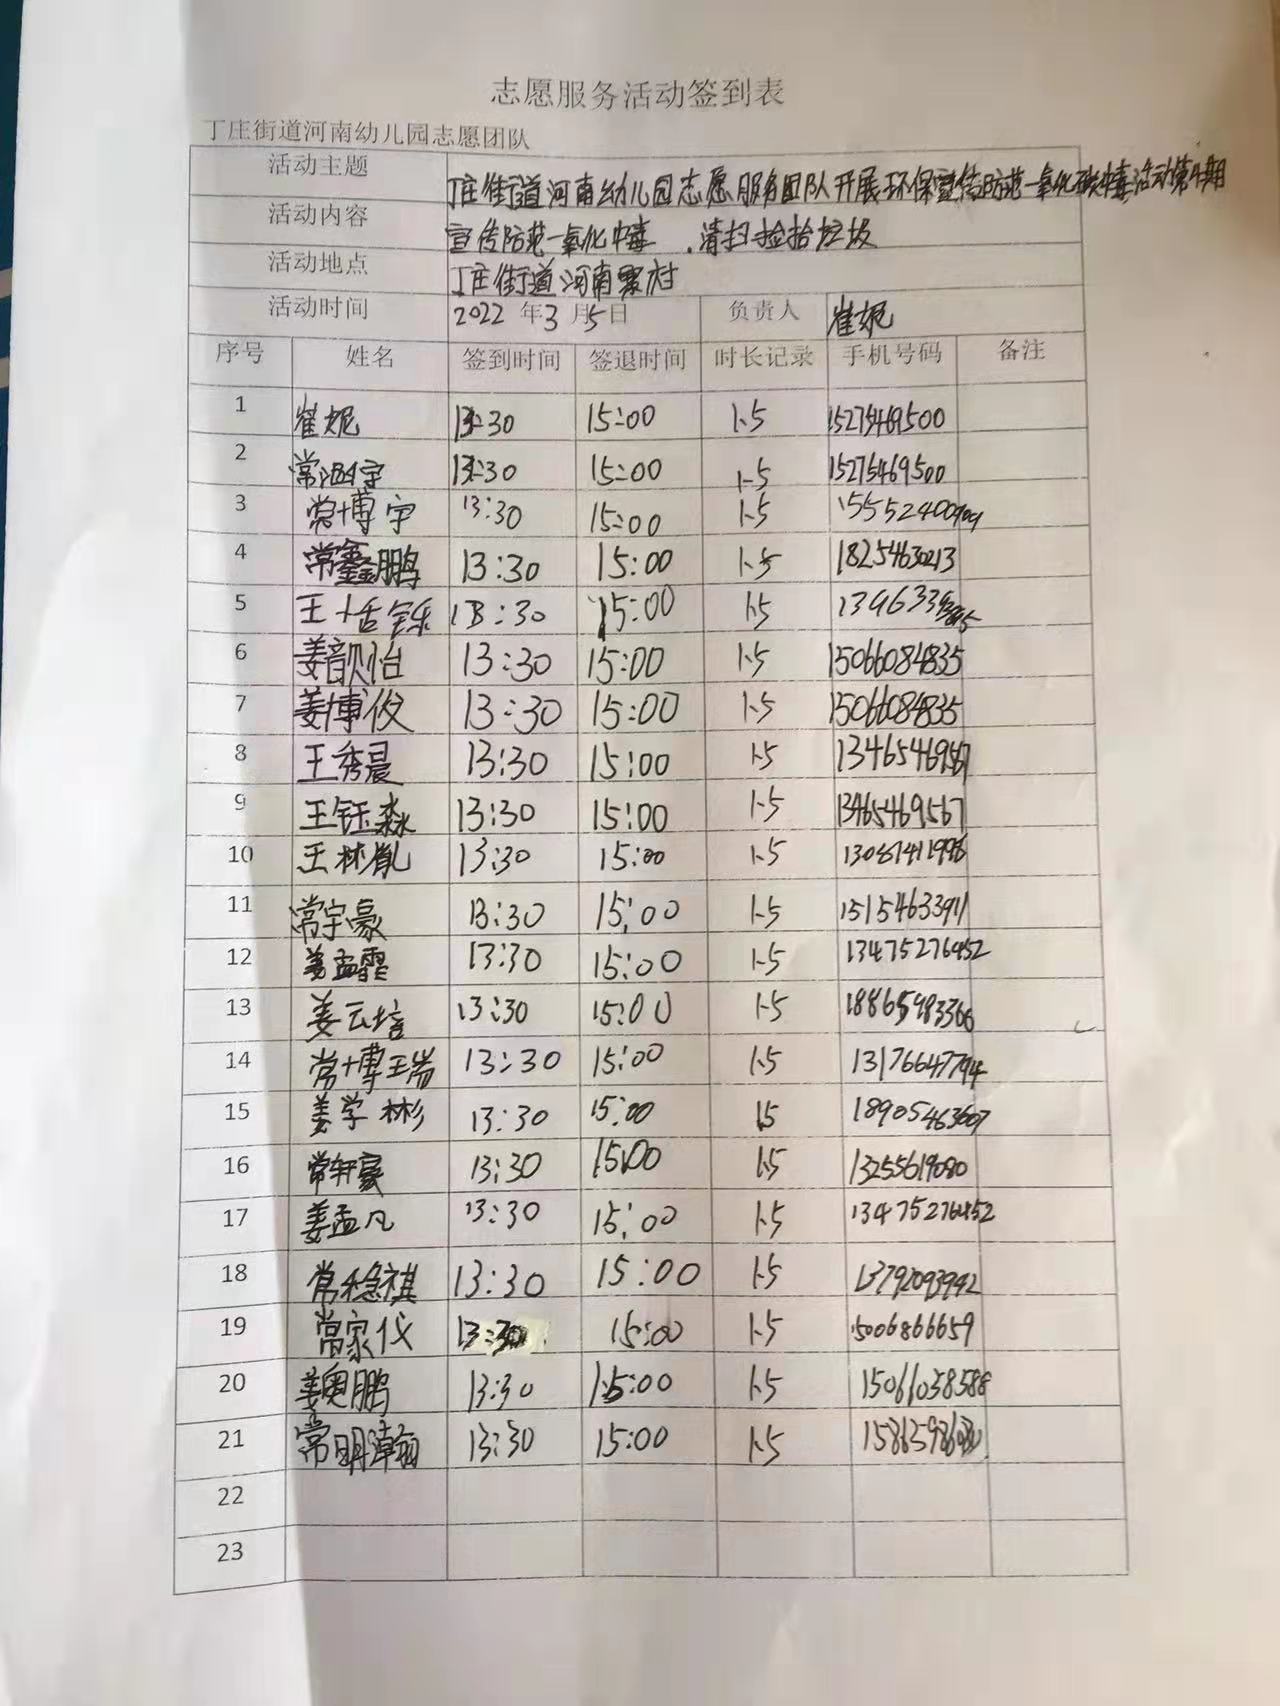 志愿服务活动签到表
丁庄街道河南幼儿园志愿团队
活动主题 丁庄街道河南幼儿园志愿服务团队开展环保宣传防范一氧化碳中毒活动第4期
活动内容 宣传防范一氧化中毒 .清扫捡拾垃圾
活动地点 丁庄街道河南累村
活动时间 2022 年3月5日 负责人 崔妮
序号 姓名 签到时间 签退时间 时长记录 手机号码 备注
1 崔妮 13:30 15:00 1.5 15275469500
2 常泗宇 13:30 15:00 1.5 15275469500
3 常博宇 13:30 15:00 1.5
4 常鑫鹏 13:30 15:00 1.5 18254630213
5 王恬铄 13:30 15:00 1.5
6 姜韵怡 13:30 15:00 1.5 15066084835
7 姜博俊 13:30 15:00 1.5 15066084835
8 王秀晨 13:30 15:00 1.5 13465469567
9 王钰淼 13:30 15:00 1.5 13465469567
10 王林胤 13:30 15:00 1.5
11 常宇豪 13:30 15:00 1.5 15154633911
12 姜孟霏 13:30 15:00 1.5 13475276452
13 姜云培 13:30 15:00 1.5 18865483366
14 常博瑞 13:30 15:00 1.5 13176647794
15 姜学彬 13:30 15:00 15 18905463607
16 常轩豪 13:30 15:00 1.5 13255619080
17 姜孟凡 13:30 15:00 1.5 13475276452
18 常稳祺 13:30 15:00 1.5 13792093942
19 常家仪 13:30 15:00 1.5 15006866659
20 姜奥鹏 13:30 15:00 1.5 15061038588
21 常明瀚 13:30 15:00 1.5
22
23